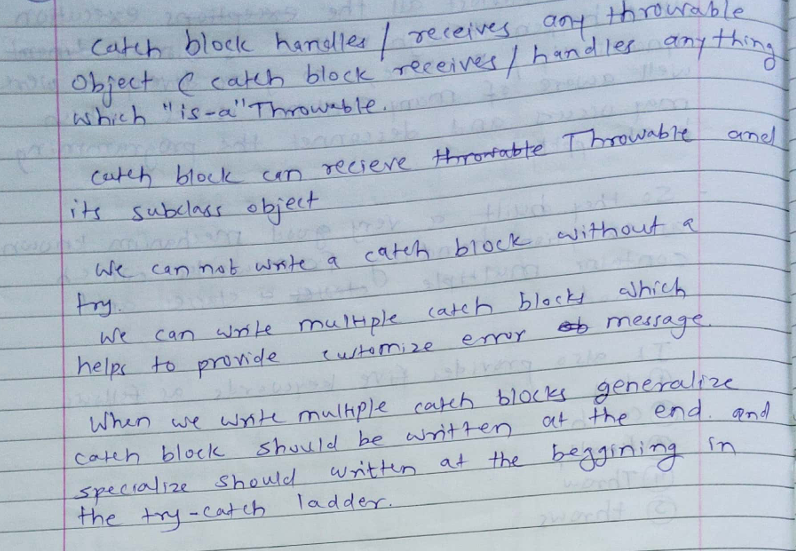 catch block handles / receives any throwable
object ( catch block receives / handles anything
which "is-a" Throwable.
catch block can recieve throwable Throwable and
its subclass object
We can not write a catch block without a
try.
We can write multiple catch blocks which
helps to provide customize error message.
When we write multiple catch blocks generalize
catch block should be written at the end. and
specialize should written at the beggining in
the try-catch ladder.